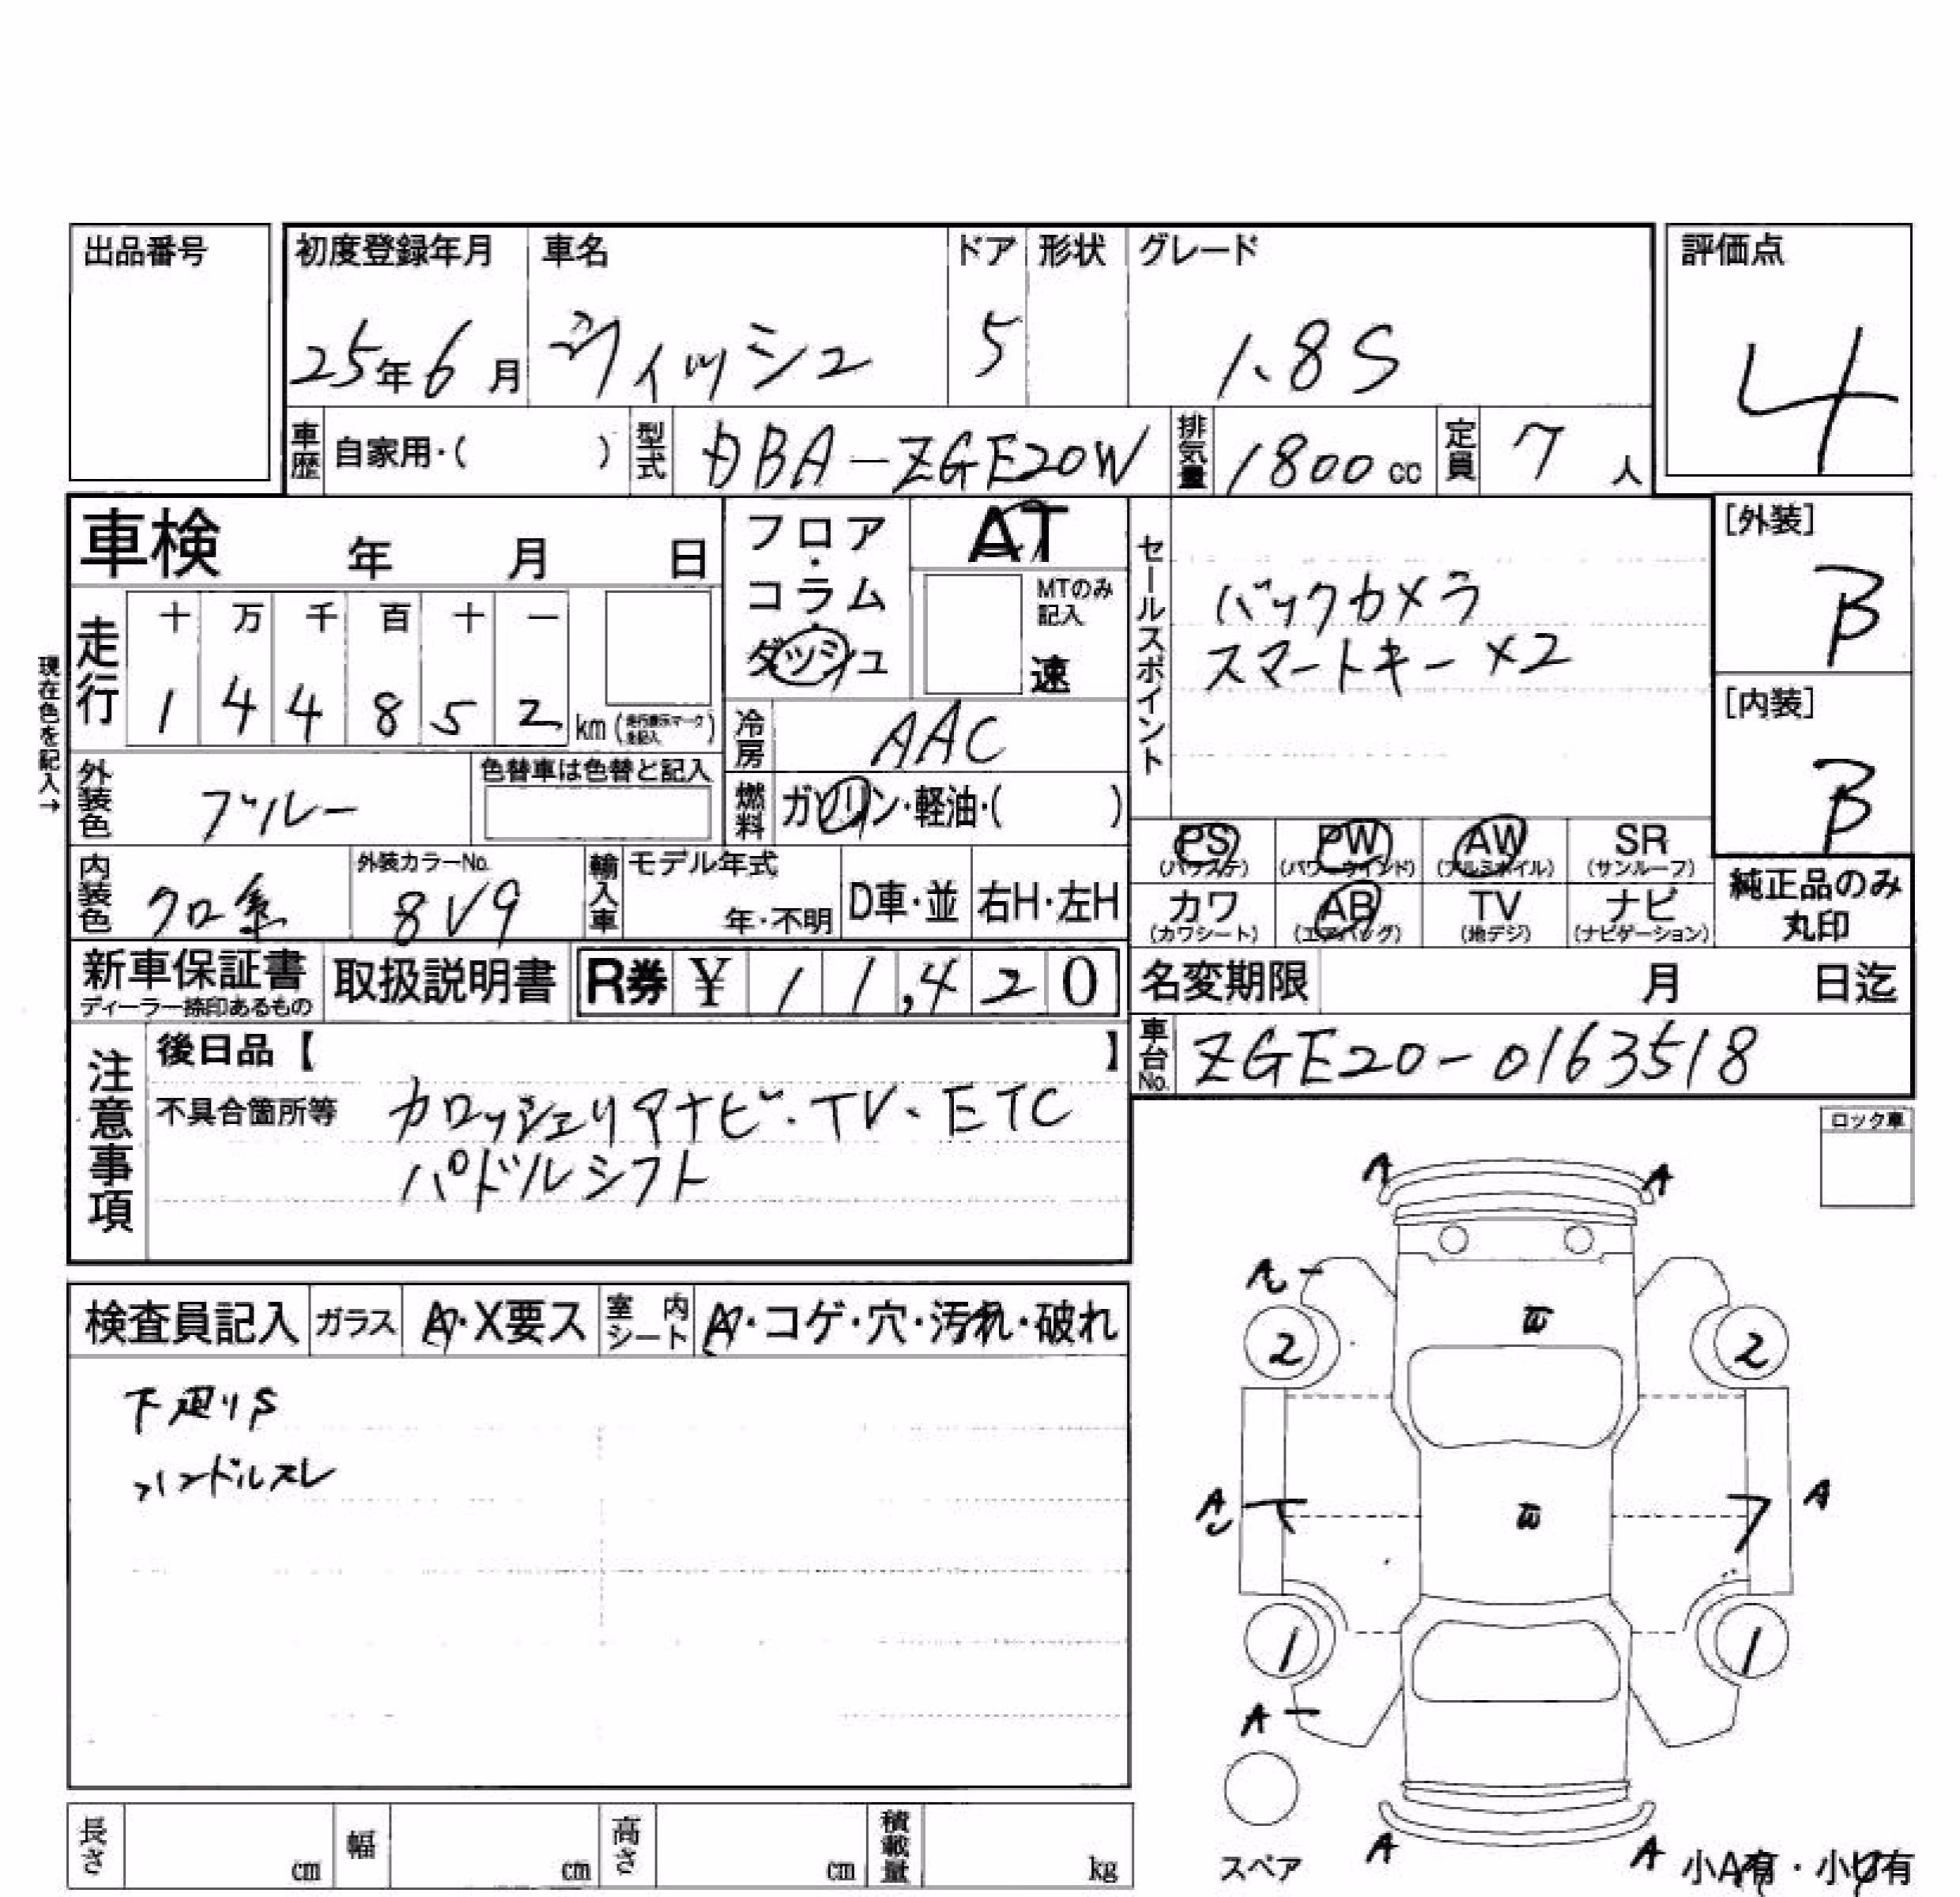 出品番号
初度登録年月 車名 ドア 形状 グレード 評価点
25年6月 ヴィッシュ 5 1.8S 4
車歴 自家用・( ) 型式 DBA-ZGE20W 排気量 1800cc 定員 7人
車検 年 月 日
フロア・コラム・ダッシュ
AT
MTのみ記入
速
セールスポイント
バックカメラ
スマートキー×2
[外装]
B
[内装]
B
現在色を記入→
走行 十 万 千 百 十 一
1 4 4 8 5 2 km (走行表示マークを記入)
冷房 AAC
外装色 ブルー 色替車は色替と記入
燃料 ガソリン・軽油・( )
PS PW AW SR
(パワステ) (パワーウインド) (アルミホイル) (サンルーフ)
カワ AB TV ナビ
(カワシート) (エアバッグ) (地デジ) (ナビゲーション)
純正品のみ
丸印
内装色 クロ系 外装カラーNo. 8V9 輸入車 モデル年式 年・不明 D車・並 右H・左H
新車保証書 取扱説明書 R券 ¥ 11,420
ディーラー捺印あるもの
名変期限 月 日迄
車台No. ZGE20-0163518
注意事項
後日品【 】
不具合箇所等 カロッツェリアナビ・TV・ETC
パドルシフト
ロック車
検査員記入 ガラス A・X要ス 室内シート A・コゲ・穴・汚れ・破れ
下廻りS
ハンドルスレ
A A
A
2 2
A A
1 1
A
スペア
A A
小A有・小U有
長さ cm 幅 cm 高さ cm 積載量 kg